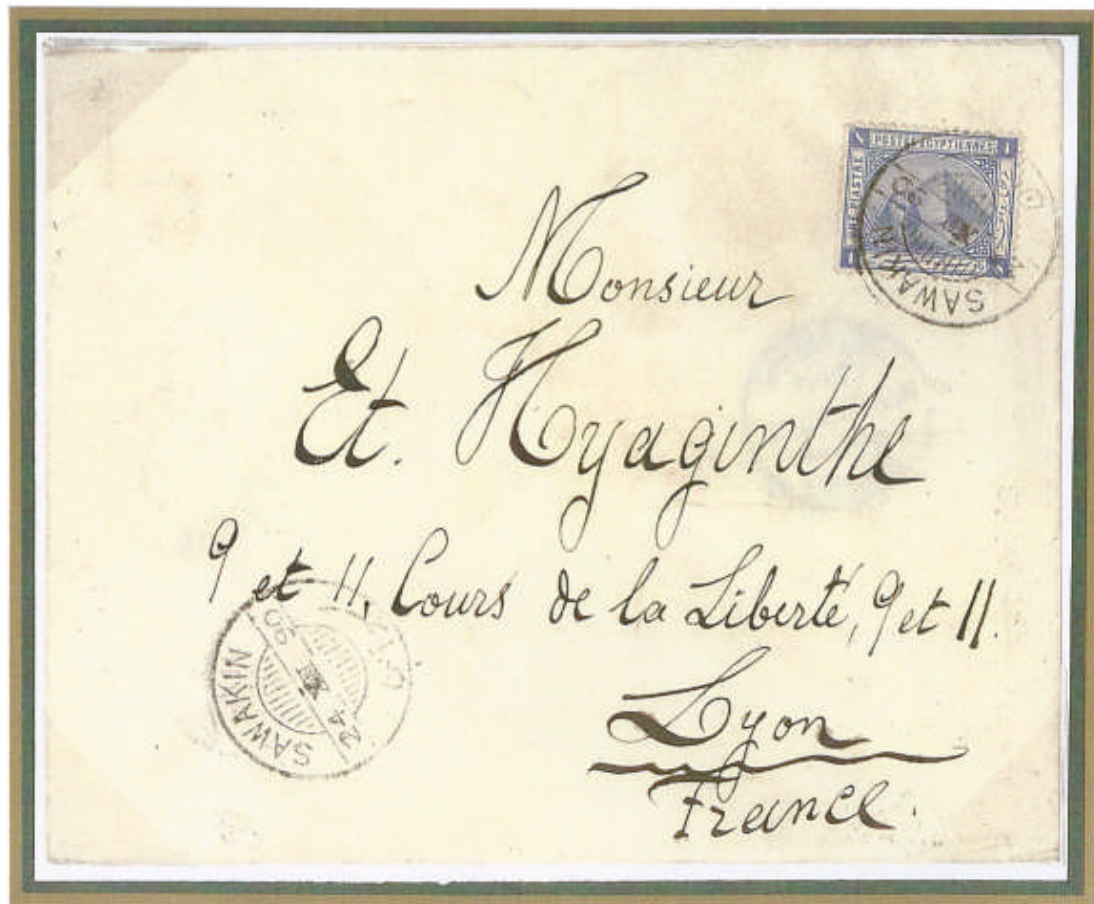 POSTES EGYPTIENNES
UNE PIASTRE
SAWAKIN
Monsieur
Et. Hyaginthe
9 et 11, Cours de la Liberté, 9 et 11.
Lyon
France.
SAWAKIN